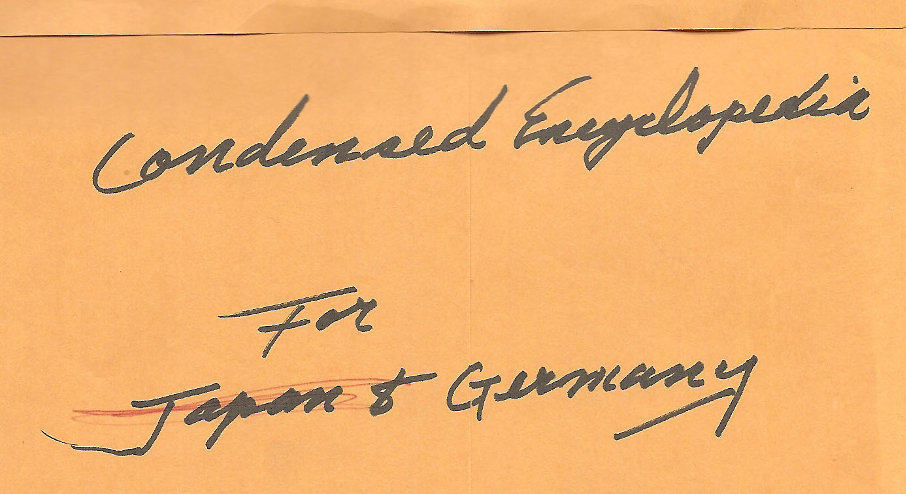 Condensed Encyclopedia
For
Japan & Germany